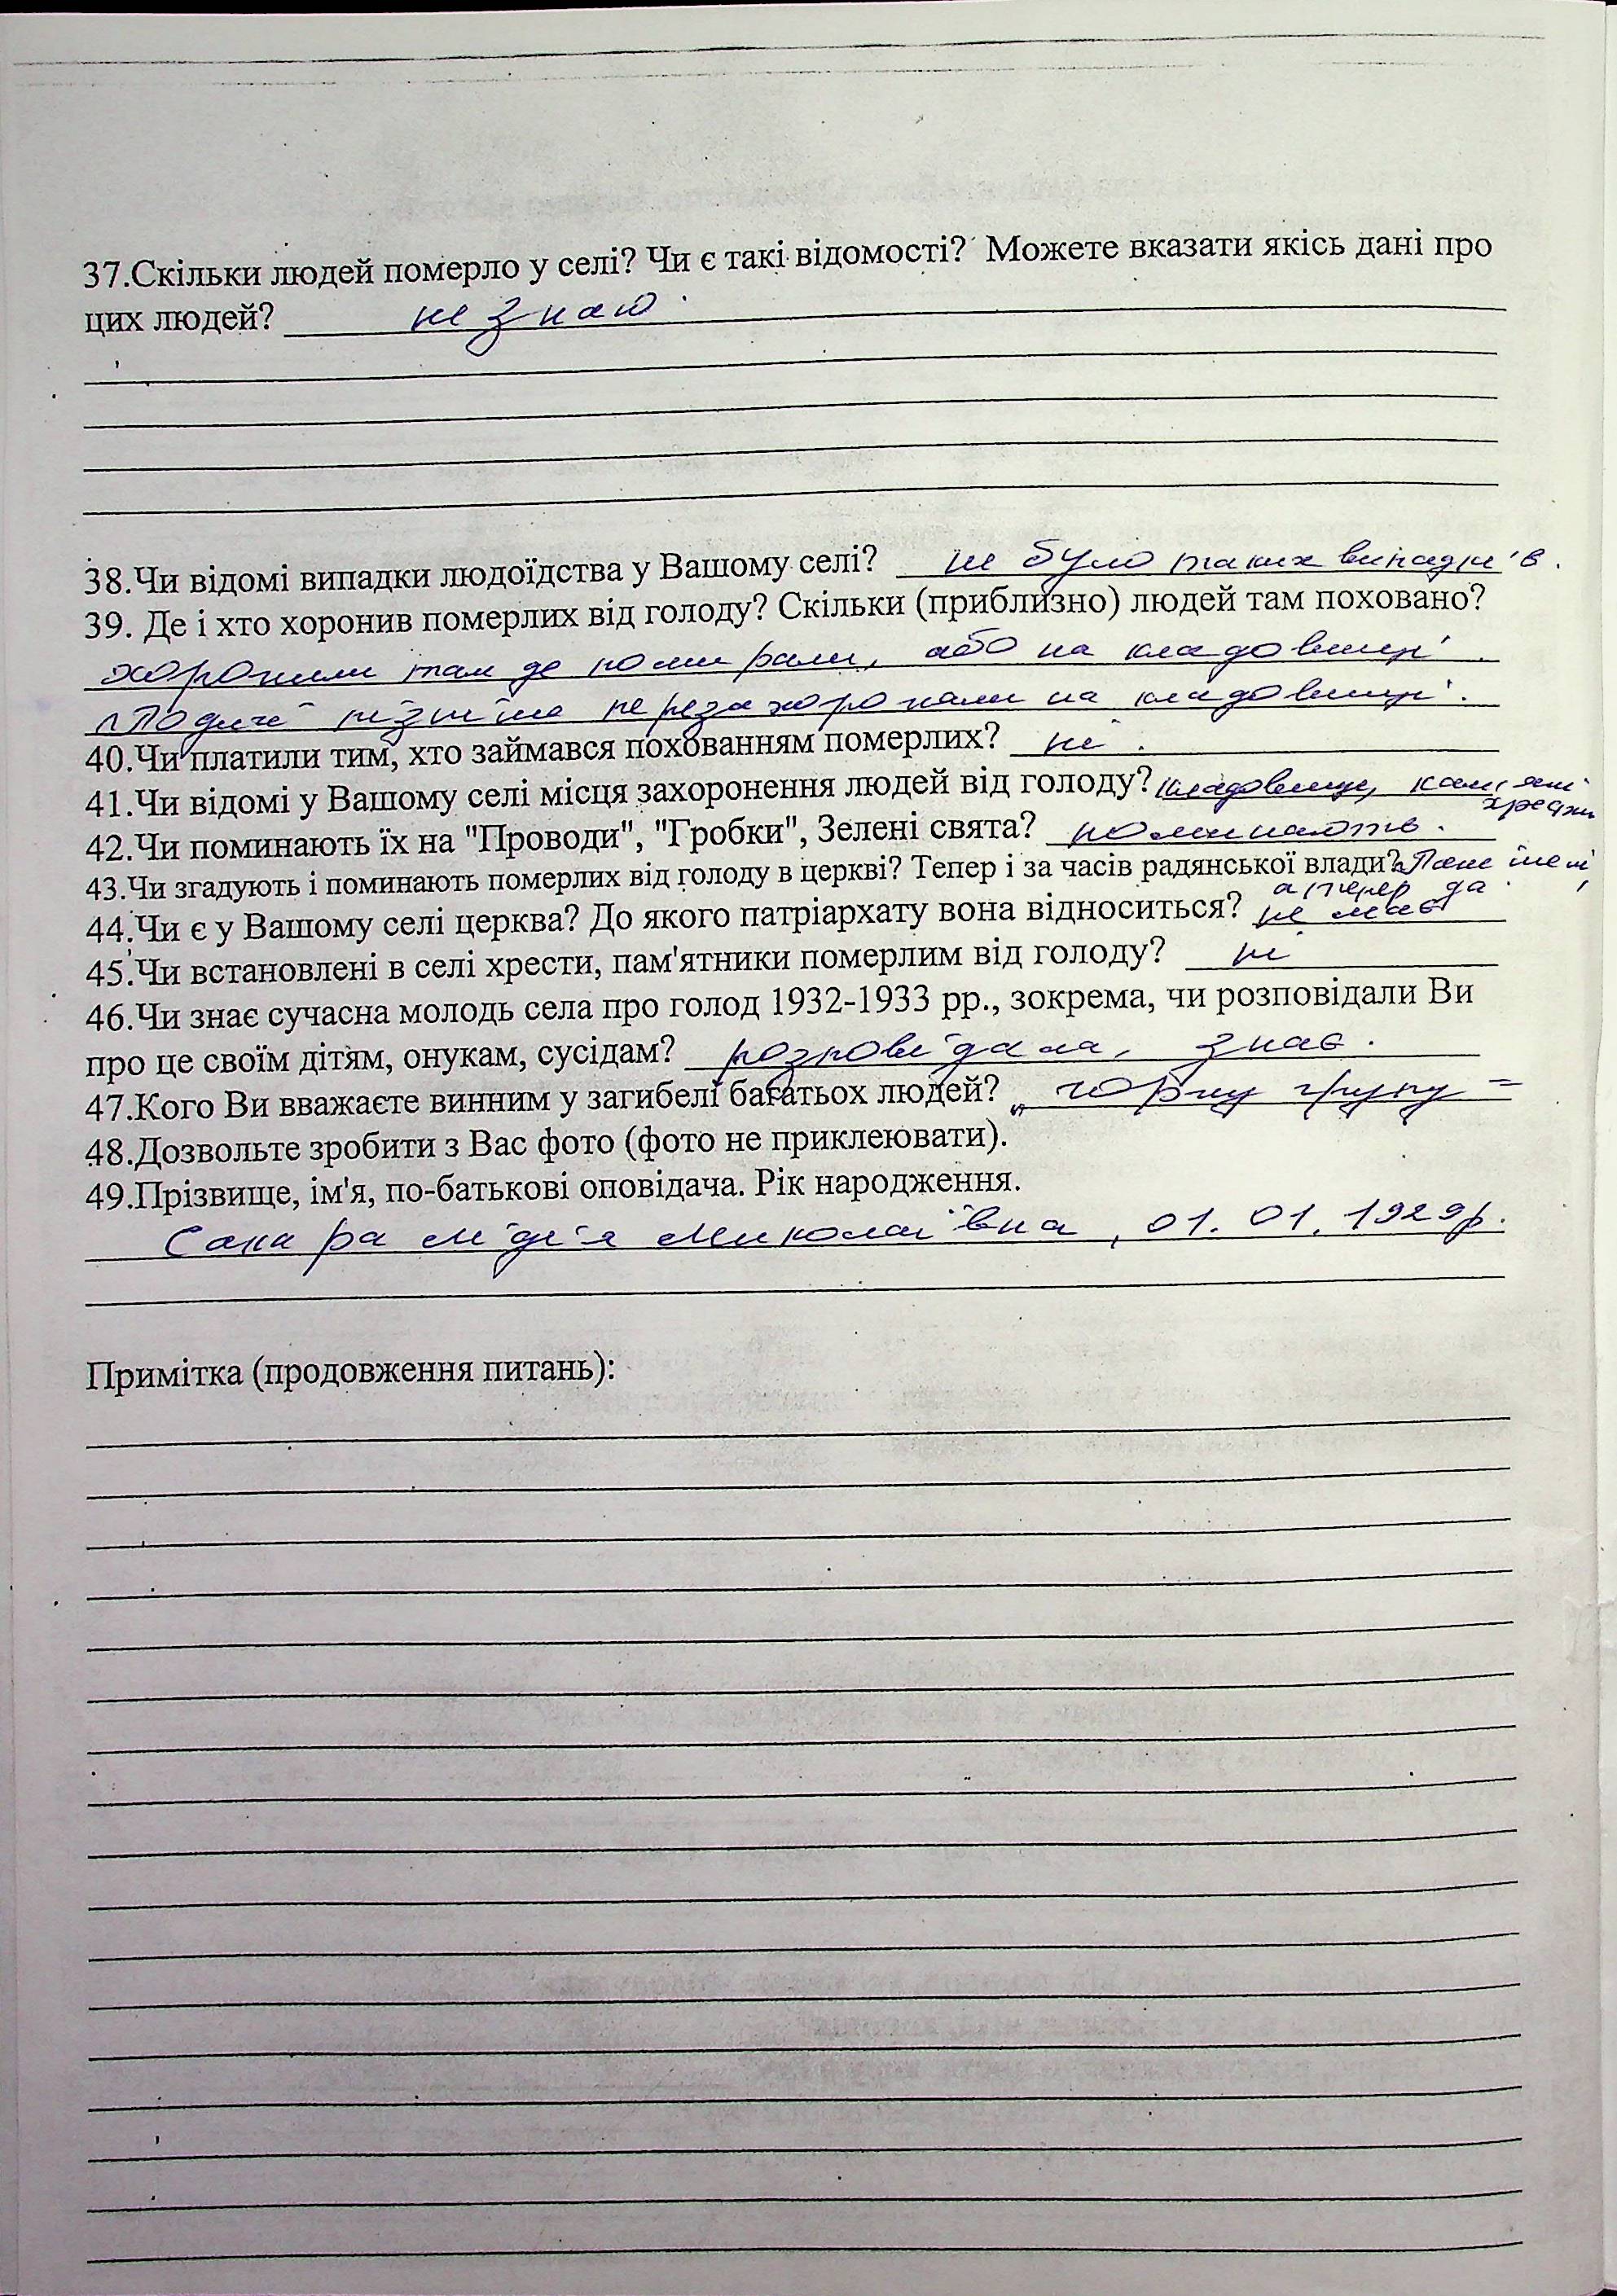 37.Скільки людей померло у селі? Чи є такі відомості? Можете вказати якісь дані про
цих людей? не знаю.
38.Чи відомі випадки людоїдства у Вашому селі? не було таких випадків.
39. Де і хто хоронив померлих від голоду? Скільки (приблизно) людей там поховано?
хоронили там де помирали, або на кладовищі.
Люди пізніше перезахороняли на кладовищі.
40.Чи платили тим, хто займався похованням померлих? ні.
41.Чи відомі у Вашому селі місця захоронення людей від голоду? кладовище, кам'яні
хрести
42.Чи поминають їх на "Проводи", "Гробки", Зелені свята? поминають.
43.Чи згадують і поминають померлих від голоду в церкві? Тепер і за часів радянської влади? ні,
а тепер да
44.Чи є у Вашому селі церква? До якого патріархату вона відноситься? не має
45.Чи встановлені в селі хрести, пам'ятники померлим від голоду? ні
46.Чи знає сучасна молодь села про голод 1932-1933 рр., зокрема, чи розповідали Ви
про це своїм дітям, онукам, сусідам? розповідала, знає.
47.Кого Ви вважаєте винним у загибелі багатьох людей? "чорну групу"
48.Дозвольте зробити з Вас фото (фото не приклеювати).
49.Прізвище, ім'я, по-батькові оповідача. Рік народження.
Сакара Лідія Миколаївна, 01.01.1929р.
Примітка (продовження питань):